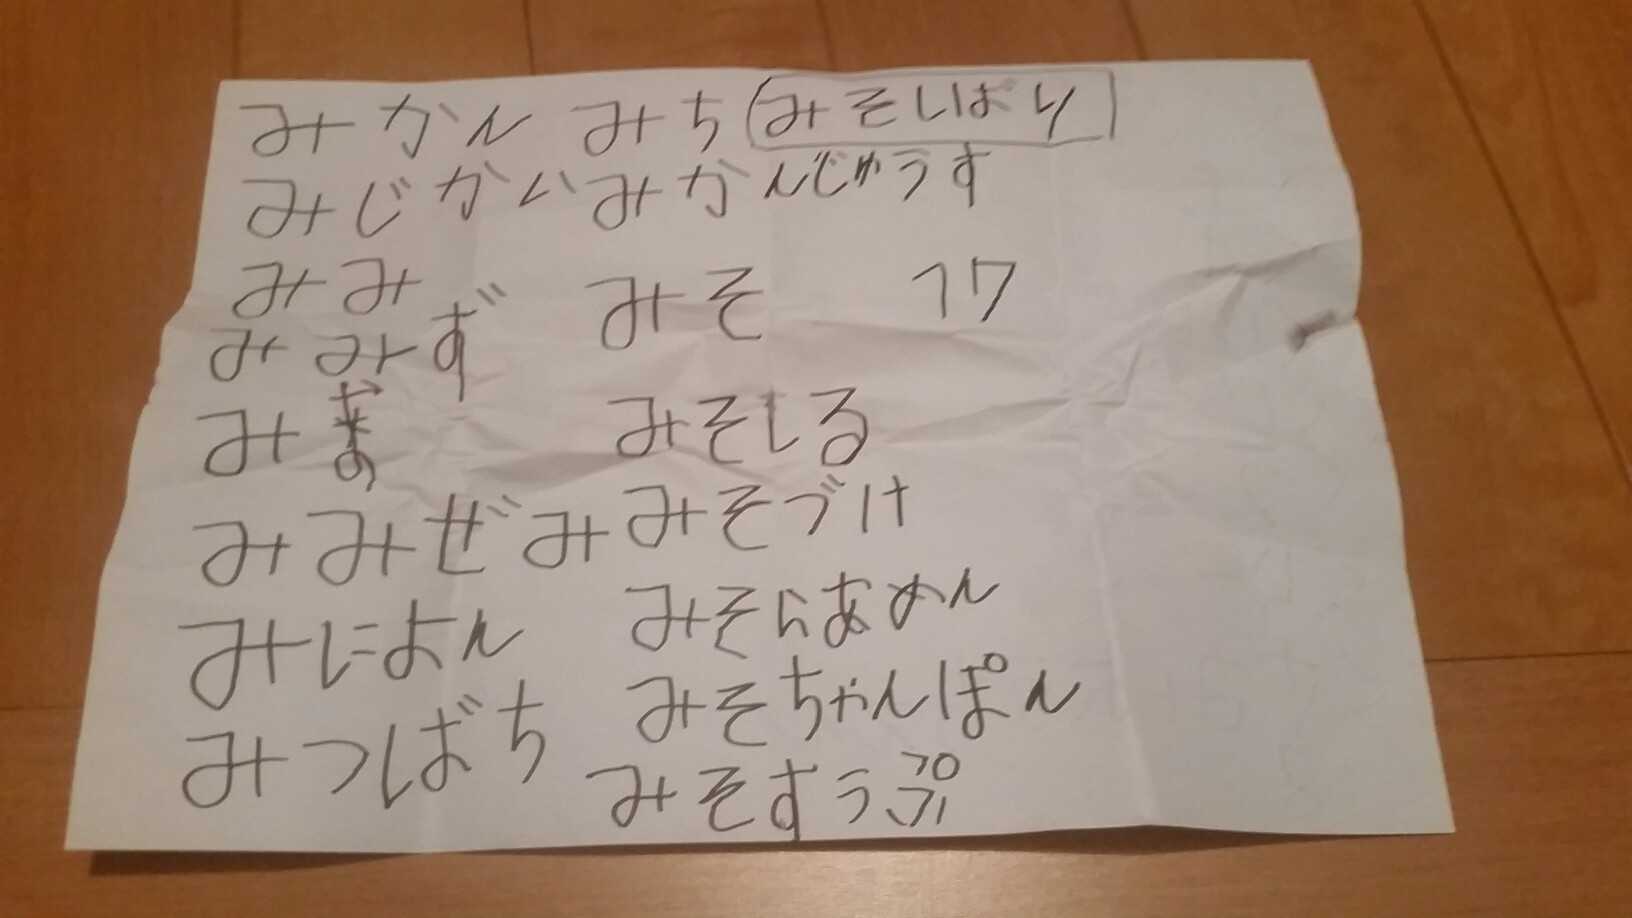 みかん みち みそしばり
みじかい みかんじゅうす
みみ みそ 17
みみず
み みそしる
みみぜみ みそづけ
みによん みそらあめん
みつばち みそちゃんぽん
みそすうぷ